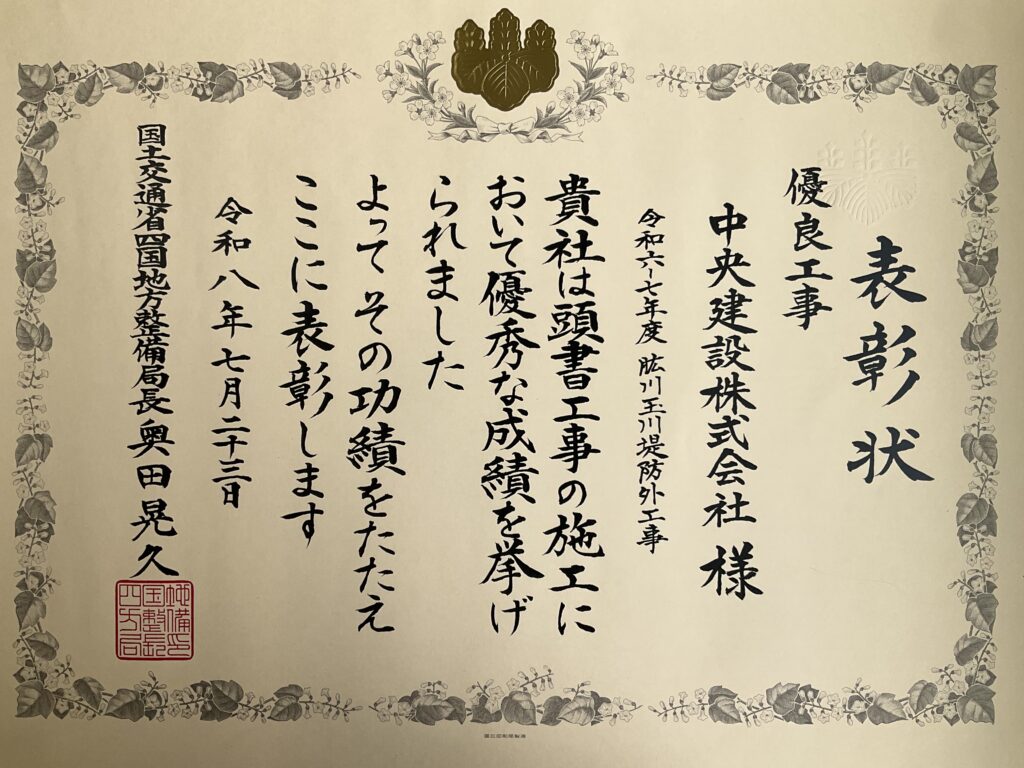 表彰状
優良工事
中央建設株式会社 様
令和六-七年度 肱川玉川堤防外工事
貴社は頭書工事の施工に
おいて優秀な成績を挙げ
られました
よってその功績をたたえ
ここに表彰します
令和八年七月二十三日
国土交通省四国地方整備局長 奥田晃久